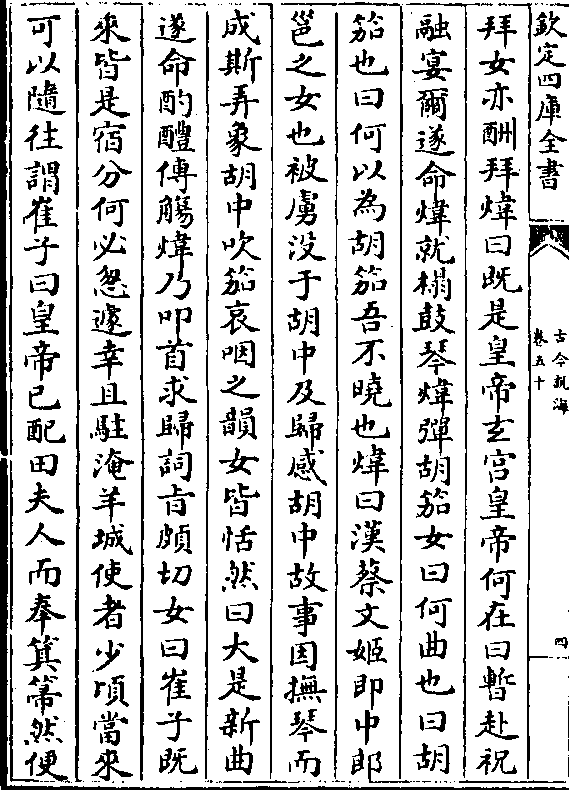 欽定四庫全書
古今說海
卷五十
四
拜女亦酬拜煒曰既是皇帝玄宮皇帝何在曰暫赴祝
融宴爾遂命煒就榻鼓琴煒彈胡笳女曰何曲也曰胡
笳也曰何以為胡笳吾不曉也煒曰漢蔡文姬即中郎
邕之女也被虜没于胡中及歸感胡中故事因撫琴而
成斯弄象胡中吹笳哀咽之韻女皆恬然曰大是新曲
遂命酌醴傳觴煒乃叩首求歸詞㫖頗切女曰崔子既
來皆是宿分何必怱遽幸且駐淹羊城使者少頃當來
可以隨往謂崔子曰皇帝已配田夫人而奉箕箒然便